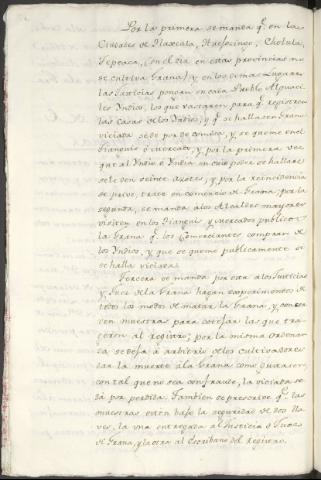 Por la primera se manda q.e en las
Ciudades de Tlaxcala, Huexocinco, Cholula,
Tepeaca, (en el dia en estas provincias no
se cultiva Grana) y en los demas Lugares
las Justicias pongan en cada Pueblo Alguaci-
les Yndios, los que bastaren, para q.e registren
las casas de los Yndios, y q.e se hallasen Grana
viciada se de por decomiso, y se queme en el
Tianguis ó mercado, y por la primera vez
que al Yndio ó Yndia en cuio poder se hallare
se le den veinte azotes, y por la reincidencia
se prive, trate en comercio de Grana: por la
segunda, se manda alos Alcaldes mayores
visiten en los Tianguis y mercados publicos
la Grana q.e los Comerciantes compran de
los Yndios, y que se queme publicamente si
se halla viciada.
Tercera se manda por esta alos Justicias
y Juez de la Grana hagan experimentos de
todos los modos de matar la Grana, y conser-
ven muestras para cotejar las que tra-
geren al registro; por la misma ordenan-
za se deja á arbitrio de los cultivadores
dar la muerte ála Grana como quisieren
con tal que no sea con fraude, la viciada se
dá por perdida. Tambien se prescrive q.e las
muestras estén bajo la seguridad de dos lla-
ves, la una entregada al Justicia ó Juez
de Grana, y la otra al Escribano del registro.